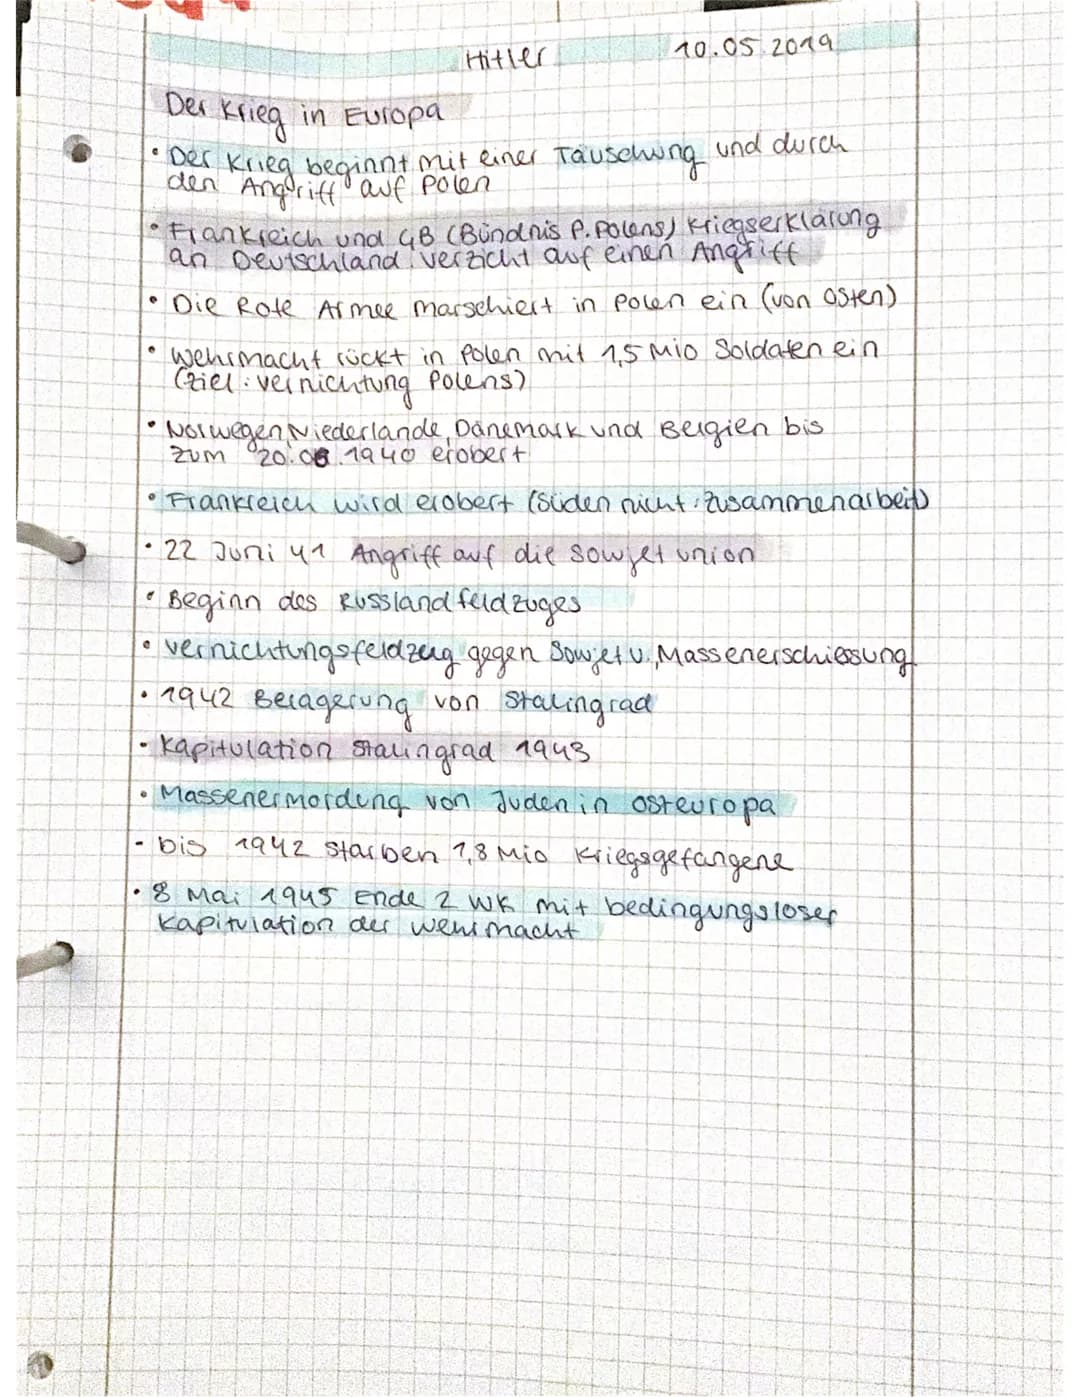 Hitler 10.05.2019
Der Krieg in Europa
• Der Krieg beginnt mit einer Täuschung und durch
den Angriff auf Polen
• Frankreich und GB (Bündnis P. Polens) Kriegserklärung
an Deutschland: Verzicht auf einen Angriff
• Die Rote Armee marschiert in Polen ein (von Osten)
• Wehrmacht rückt in Polen mit 1,5 Mio Soldaten ein
(Ziel: Vernichtung Polens)
• Norwegen, Niederlande, Dänemark und Belgien bis
zum 20.06.1940 erobert
• Frankreich wird erobert (Süden nicht: Zusammenarbeit)
• 22 Juni 41 Angriff auf die Sowjetunion
• Beginn des Russlandfeldzuges
• Vernichtungsfeldzug gegen Sowjetu., Massenerschiessung
• 1942 Belagerung von Stalingrad
- Kapitulation Stalingrad 1943
• Massenermordung von Juden in Osteuropa
- bis 1942 starben 1,8 Mio Kriegsgefangene
• 8 Mai 1945 Ende 2 WK mit bedingungsloser
Kapitulation der Wehrmacht